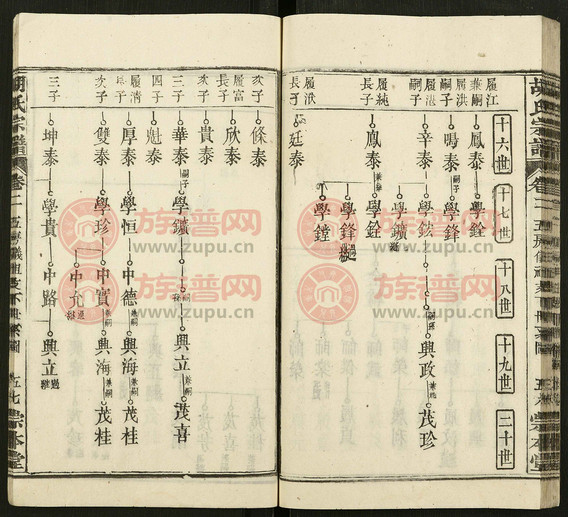 胡氏宗譜
卷二
十六世
十七世
十八世
十九世
二十世
履江
兼嗣
鳳泰
學銓
履洪
嗣子
鳴泰
學鋒
履湛
嗣子
辛泰
學鈜
興政
茂珍
學鑛
履純
長子
鳳泰
學銓
學鋒
學鏜
履洑
長子
廷泰
次子
條泰
履富
長子
欣泰
次子
貴泰
三子
華泰
嗣子
學鑛
興立
茂喜
四子
魁泰
履清
長子
厚泰
學恒
中德
興海
茂桂
次子
雙泰
學珍
中實
興海
茂桂
中允
三子
坤泰
學貴
中路
興立
胡氏宗譜
卷二
五七
崇本堂
崇本堂
族谱网
www.zupu.cn
族谱网
www.zupu.cn
族谱网
www.zupu.cn
族谱网
www.zupu.cn